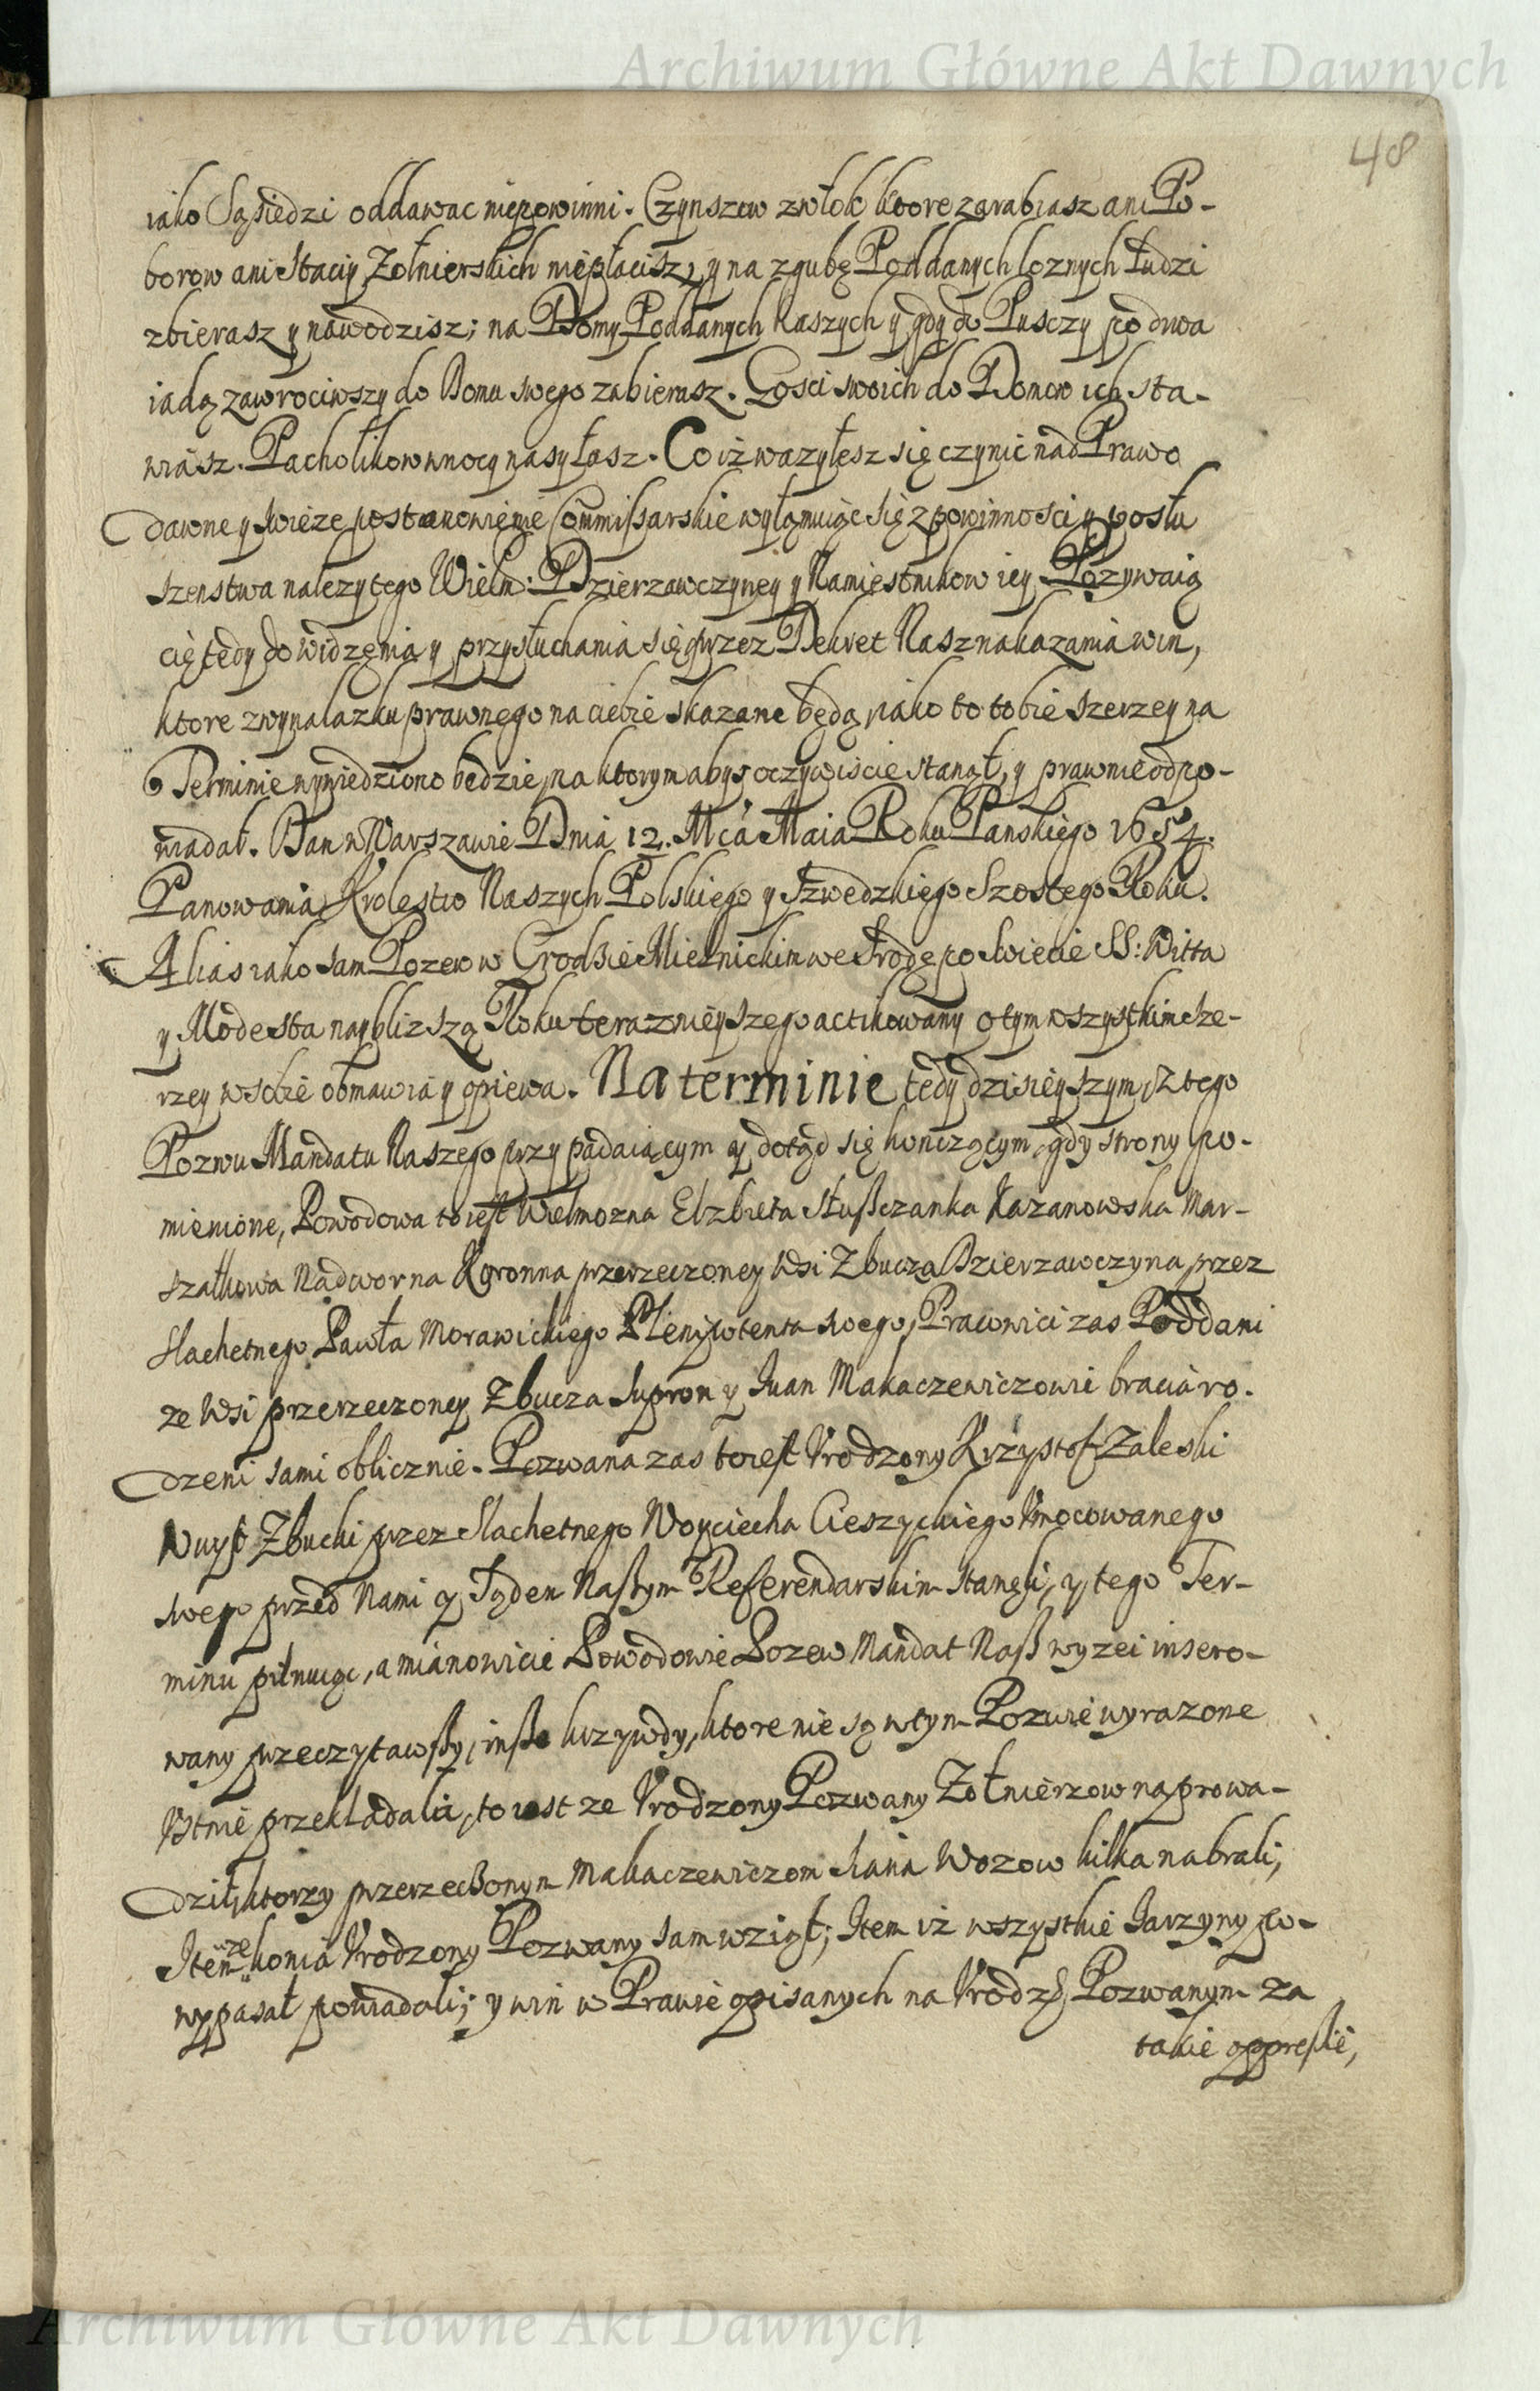 Archiwum Główne Akt Dawnych
48
iako Sąsiedzi oddawac niepowinni. Czynszow zwłok ktore zarabiasz ani Po-
borow ani Staciy Zołnierskich niepłacisz, y na zgubę Poddanych loznych ludzi
zbierasz y nawodzisz; na Domy Poddanych Naszych y gdy do Pusczy po drwa
iadą zawrociwszy do Domu swego zabierasz. Gosci swoich do Domow ich sta-
wiasz. Pacholikow w nocy nasyłasz. Co iż wazyłesz się czynic nad Prawo
dawne y swieze postanowienie Commissarskie wyłamuiąc się z powinnosci y posłu
szenstwa nalezytego Wielm: Dzierzawczyney y Namiestnikow iey. Pozywaią
cię tedy do widzenia y przysłuchania się przez Dekret Nasz nakazania win,
ktore z wynalazku prawnego na ciebie skazane będą, iako to tobie szerzey na
Terminie wywiedziono będzie, na ktorym abys oczywiscie stanął, y prawnie odpo-
wiadał. Dan w Warszawie Dnia 12. Mca Maia Roku Panskiego 1654.
Panowania Krolestw Naszych Polskiego y Szwedzkiego Szostego Roku.
Alias iako sam Pozew w Grodzie Mielnickim we Srodę po Swięcie SS: Witta
y Modesta nayblizszą Roku teraznieyszego actikowany o tym wszystkim sze-
rzey w sobie obmawia y opiewa. Na terminie tedy dzisieyszym, z tego
Pozwu Mandatu Naszego przypadaiącym y dotąd się konczącym, gdy strony po-
mienione, Powodowa to iest Wielmozna Elzbieta Słuszczanka Kazanowska Mar-
szałkowa Nadworna Koronna przerzeczoney Wsi Zbucza Dzierzawczyna przez
Slachetnego Pawła Morawickiego Plenipotenta swego, Pracowici zas Poddani
ze Wsi przerzeczoney Zbucza Supron y Iwan Makaczewiczowie bracia ro-
dzeni sami oblicznie. Pozwana zas to iest Vrodzony Krzysztof Zaleski
Woyt Zbucki przez Slachetnego Woyciecha Cieszyckiego Vmocowanego
swego przed Nami y Sądem Naszym Referendarskim stanęli, y tego Ter-
minu pilnuiąc, a mianowicie Powodowie Pozew Mandat Nasz wyzei insero-
wany przeczytawszy, insze krzywdy, ktore nie są w tym Pozwie wyrazone
Vstnie przekładali, to iest ze Vrodzony Pozwany Zołnierzow naprowa-
dził, ktorzy przerzeczonym Makaczewiczom siana Wozow kilka nabrali;
Item ze konia Vrodzony Pozwany sam wziął; Item iż wszystkie Iarzyny po-
wypasał powiadali; y win w Prawie opisanych na Vrodz: Pozwanym za
takie oppressie,
Archiwum Główne Akt Dawnych